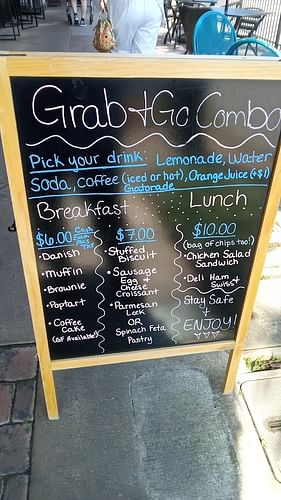 Grab + Go Combo
Pick your drink: Lemonade, Water
Soda, coffee (iced or hot), Orange Juice (+$1)
Gatorade
Breakfast
Lunch
$6.00
• Danish
• Muffin
• Brownie
• Poptart
• Coffee
Cake
(GF Available)
$7.00
• Stuffed
Biscuit
• Sausage
Egg +
Cheese
Croissant
• Parmesan
Leek
OR
Spinach Feta
Pastry
$10.00
(bag of chips too!)
• Chicken Salad
Sandwich
• Deli Ham +
Swiss
Stay Safe
+
ENJOY!